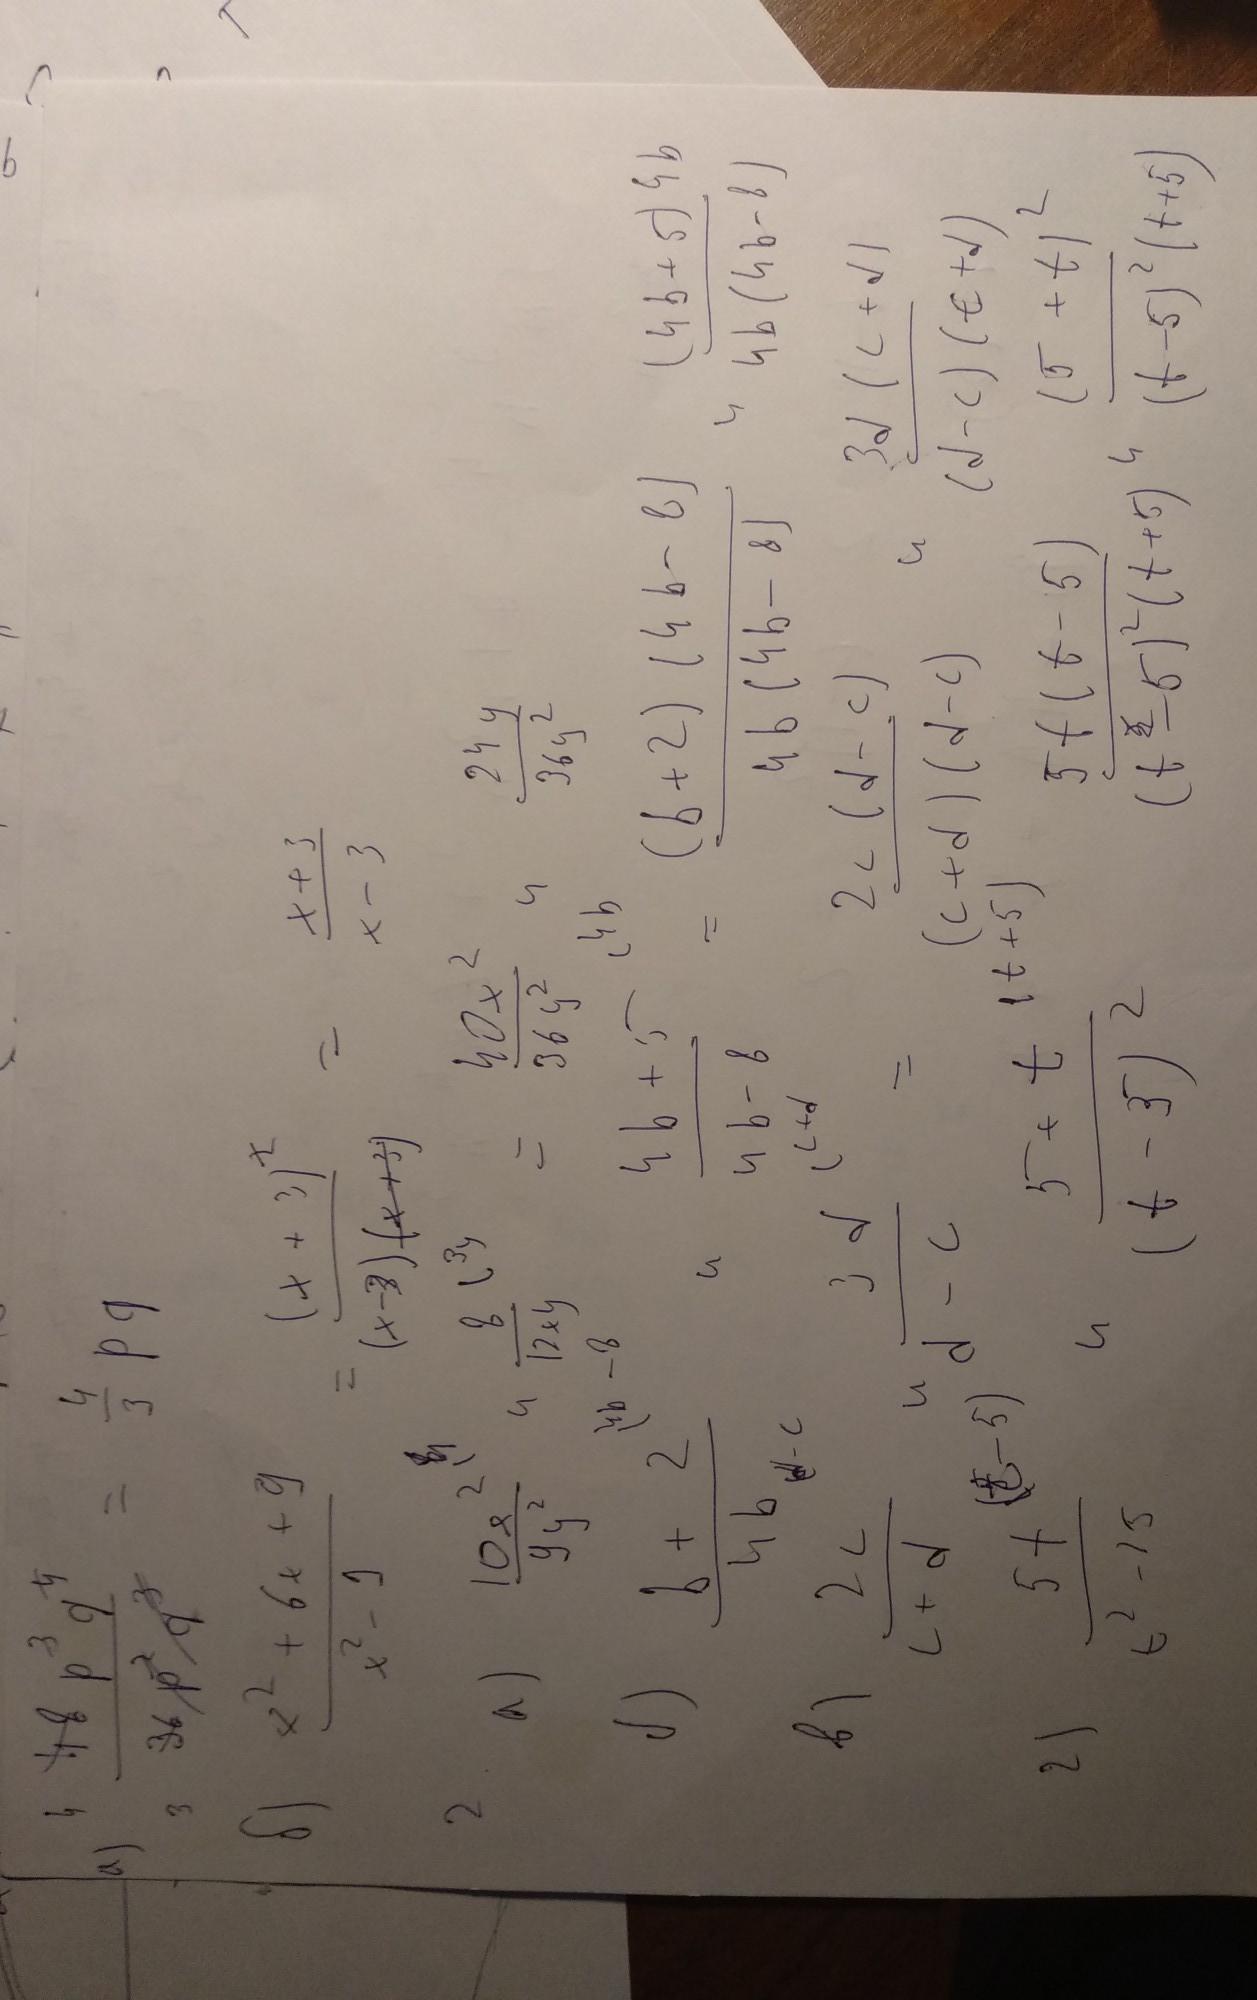 а) 48 p³ q⁴ / 36 p² q³ = 4/3 pq
б) x² + 6x + 9 / x² - 9 = (x + 3)² / (x-3)(x+3) = x+3 / x-3
2
а) 10x² / 9y² и 8 (3y / 12xy = 40x² / 36y² и 24y / 36y²
б) b + 2 (4b-8 / 4b и 4b + 5 (4b / 4b - 8 = (b+2)(4b-8) / 4b(4b-8) и (4b+5)4b / 4b(4b-8)
в) 2c (d-c / c+d и 3d (c+d / d-c = 2c(d-c) / (c+d)(d-c) и 3d(c+d) / (d-c)(c+d)
г) 5t (t-5) / t²-25 и 5+t (t+5) / (t-5)² 5t(t-5) / (t-5)²(t+5) и (5+t)² / (t-5)²(t+5)